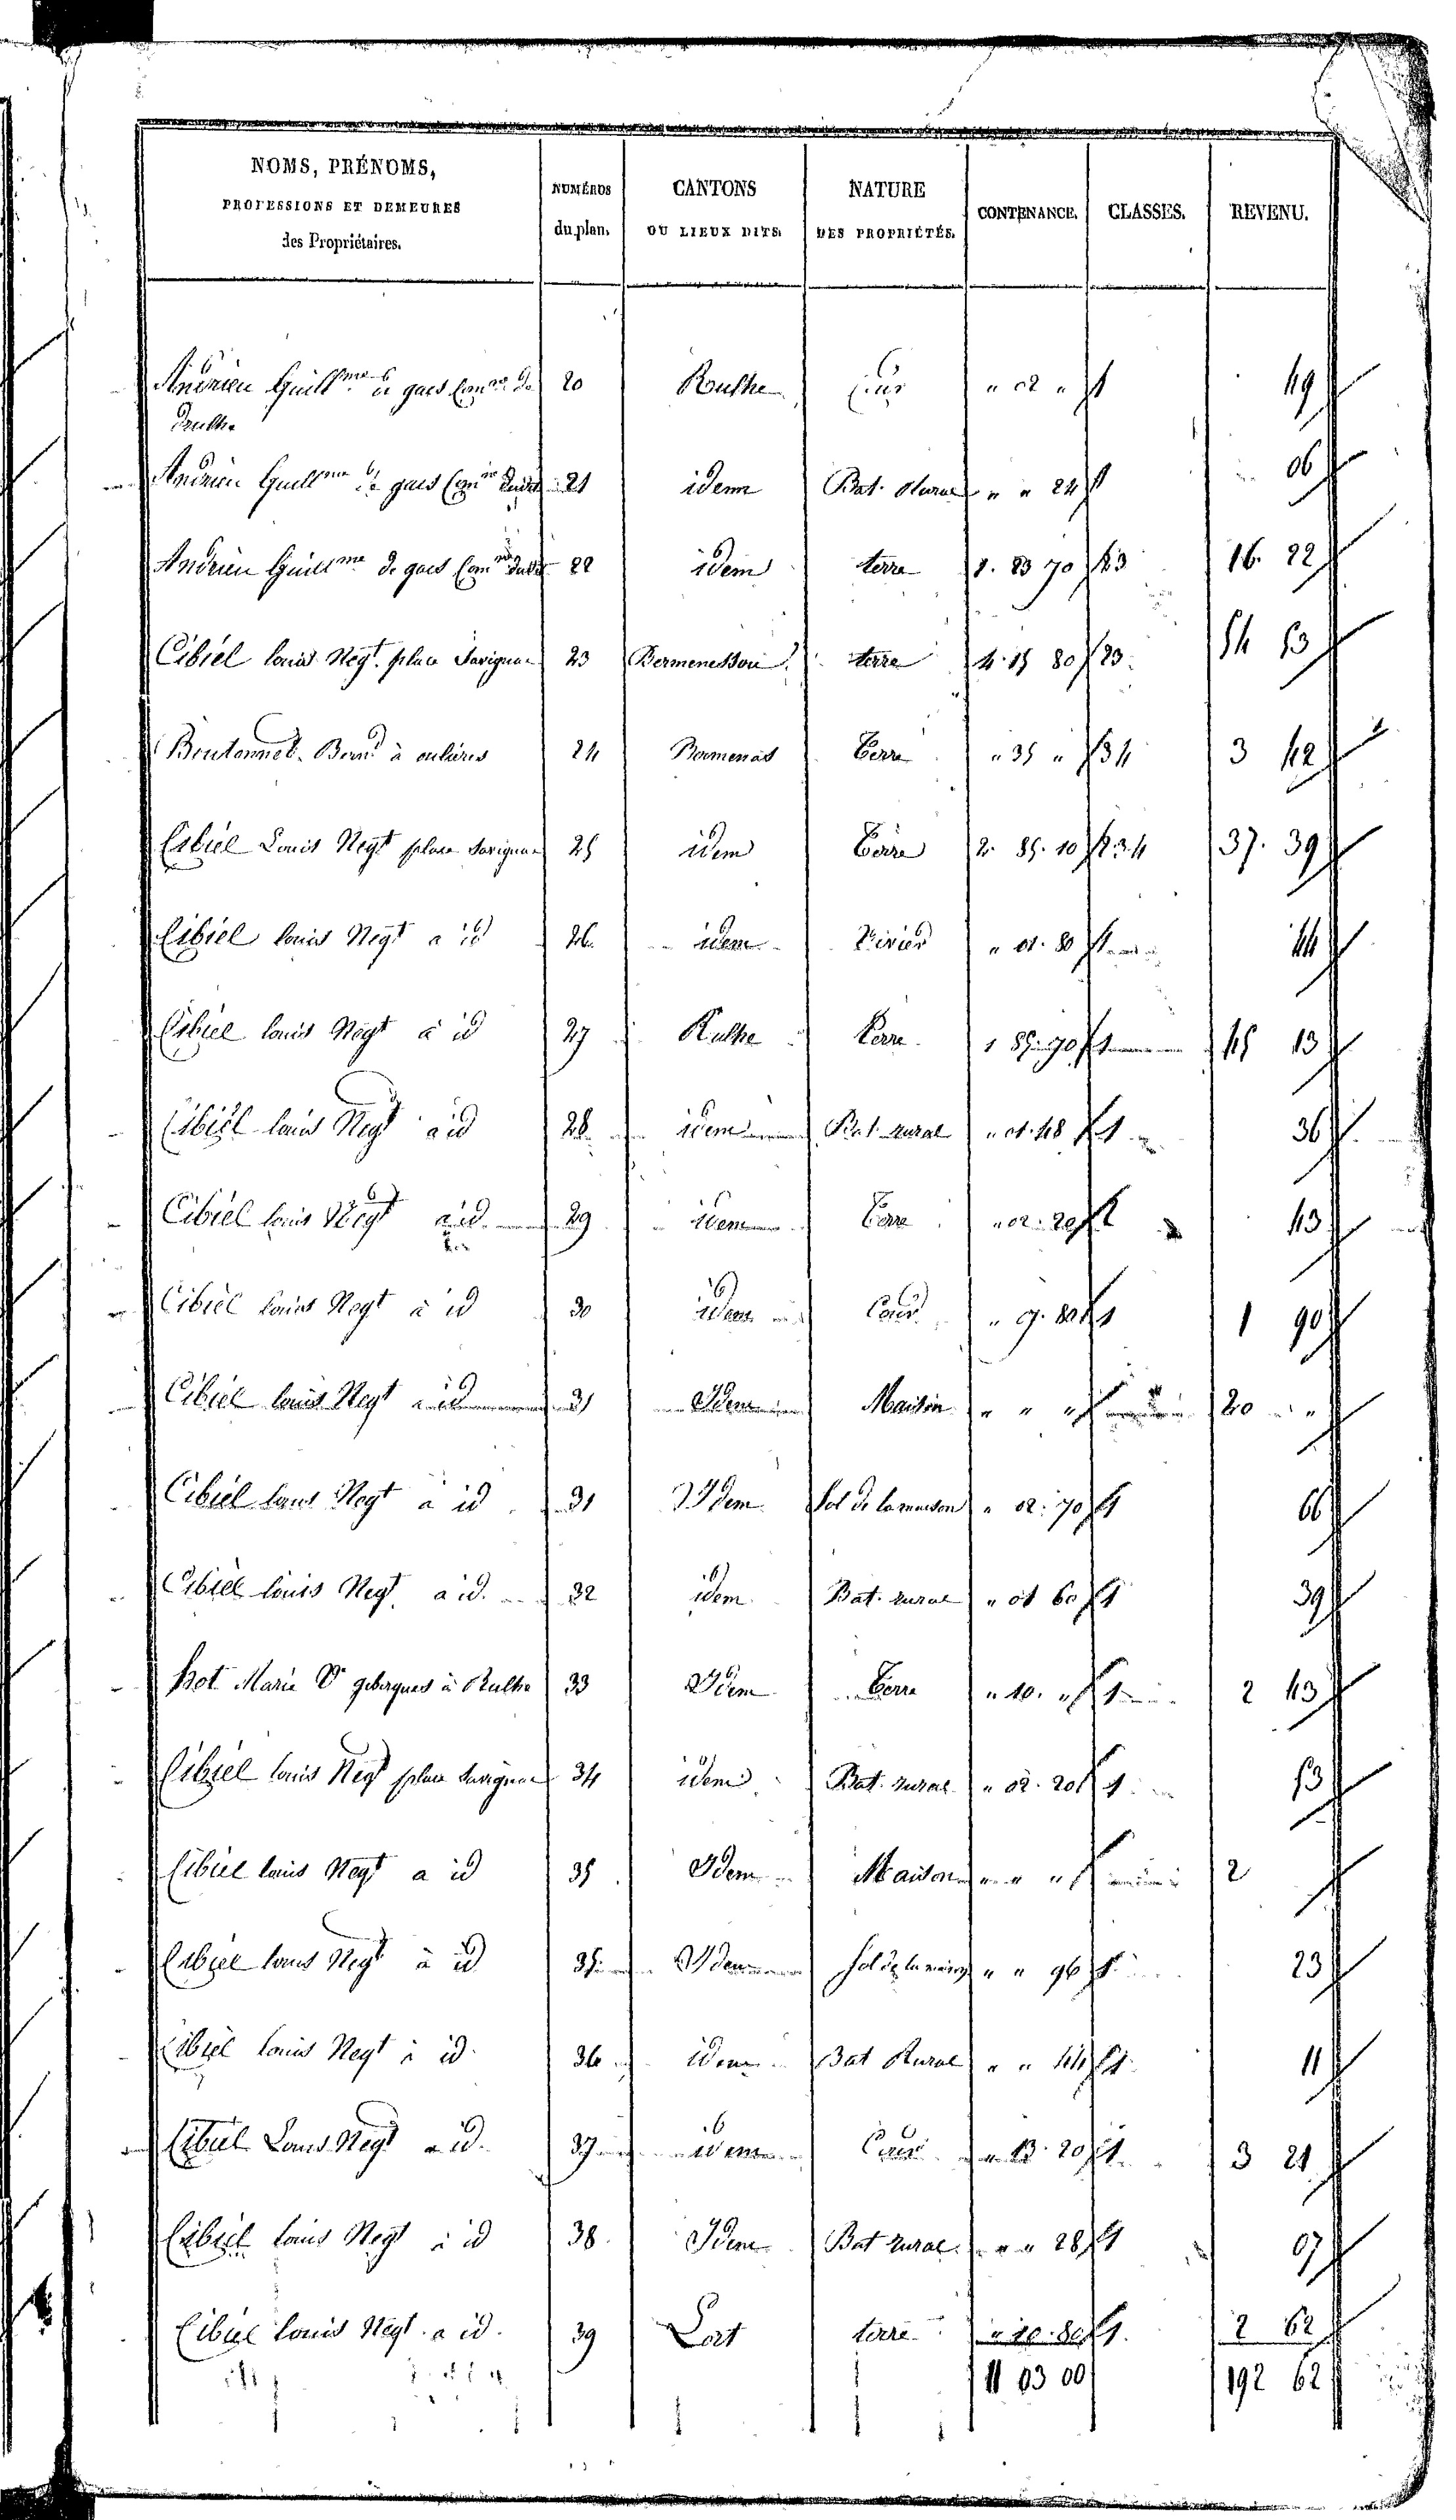 NOMS, PRÉNOMS,
PROFESSIONS ET DEMEURES
des Propriétaires.
NUMÉROS
du plan.
CANTONS
OU LIEUX DITS.
NATURE
DES PROPRIÉTÉS.
CONTENANCE.
CLASSES.
REVENU.
Andrieu Guillme de gaes Comne de 20 Roulhe Cour " 02 " 1 49
Rulhe
Andrieu Guillme de gaes Comne 21 idem Bat. Rural " " 24 1 06
Andrieu Guillme de gaes Comne 22 idem terre 1. 23 70 123 16. 22
Cibiel louis Negt. place Savignac 23 terre 4. 15 80 123. 54 53
Boutonnet. Bernd à 24 Bormenat Terre " 35 " 34 3 42
Cibiel Louis Negt place Savignac 25 idem Terre 2. 85. 10 1234 37. 39
Cibiel louis Negt a id 26. idem Vivier " 01. 80 1 44
Cibiel louis Negt à id 27 Rulhe Terre 1 85. 70 1 45 13
Cibiel louis Negt a id 28 idem Bat. rural " 01. 48 1 36
Cibiel louis Negt a id 29 idem Terre " 02. 20 43
Cibiel louis Negt à id 30 idem Cour " 7. 80 1 1 90
Cibiel louis Negt a id 31 Idem Maison " " " 20 "
Cibiel louis Negt à id 31 Idem Sol de la maison " 02. 70 1 66
Cibiel louis Negt. a id. 32 idem Bat. rural " 01 60 1 39
Marie Ve à Rulhe 33 Idem Terre " 10. " 1 2 43
Cibiel louis Negt place Savignac 34 idem Bat. rural " 02. 20 1 53
Cibiel louis Negt a id 35 Idem Maison " " " 2
Cibiel louis Negt à id 35 Idem Sol de la maison " " 96 1 23
Cibiel louis Negt à id. 36 idem Bat Rural " " 44 1 11
Cibiel Louis Negt a id. 37 idem Cour " 13. 20 1. 3 21
Cibiel louis Negt à id 38. Idem Bat rural " " 28 1 07
Cibiel louis Negt. a id. 39 Lort terre " 10. 80 1. 2 62
11 03 00 192 62